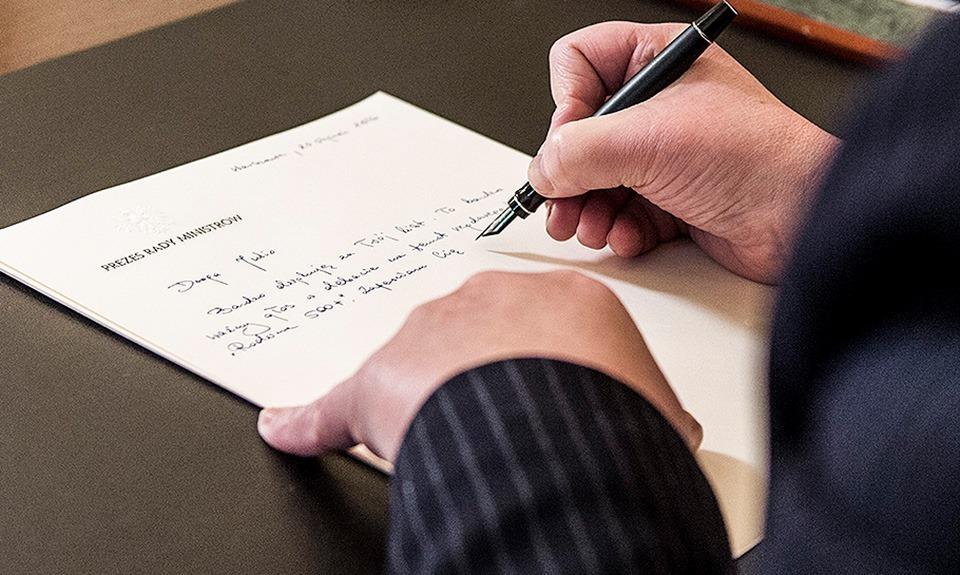 Warszawa, 2016
PREZES RADY MINISTRÓW
Droga
Bardzo dziękuję za Twój list. To bardzo
ważny głos w debacie na temat
„Rodzina 500+". Zapewniam Cię